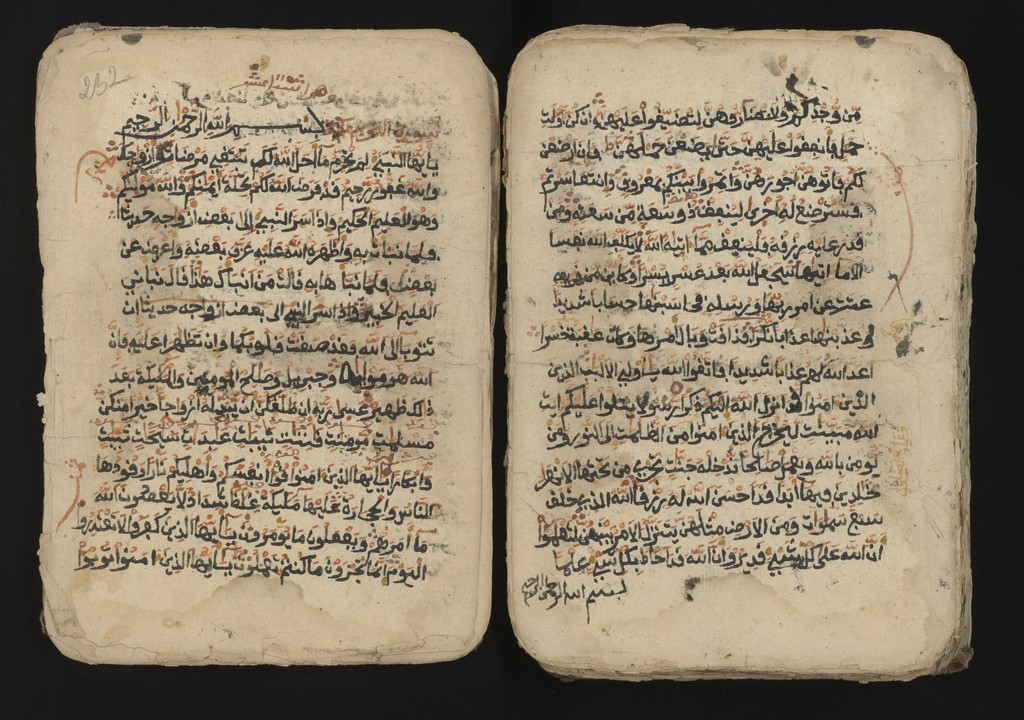 من وجدكم ولا تضاروهن لتضيقوا عليهن وان كن اولت
حمل فانفقوا عليهن حتى يضعن حملهن فان ارضعن
لكم فاتوهن اجورهن واتمروا بينكم بمعروف وان تعاسرتم
فسترضع له اخرى لينفق ذو سعة من سعته ومن
قدر عليه رزقه فلينفق مما اتيه الله لا يكلف الله نفسا
الا ما اتيها سيجعل الله بعد عسر يسرا وكاين من قرية
عتت عن امر ربها ورسله فحاسبنها حسابا شديدا
وعذبنها عذابا نكرا فذاقت وبال امرها وكان عقبة خسرا
اعد الله لهم عذابا شديدا فاتقوا الله ياولي الالبب الذين
الذين امنوا قد انزل الله اليكم ذكرا رسولا يتلوا عليكم ايت
الله مبينت ليخرج الذين امنوا من الظلمت الى النور ومن
يومن بالله ويعمل صالحا ندخله جنت تجري من تحتها الانهر
خلدين فيها ابدا قد احسن الله له رزقا الله الذي خلق
سبع سموات ومن الارض مثلهن يتنزل الامر بينهن لتعلموا
ان الله على كل شيء قدير وان الله قد احاط بكل شيء علما
بسم الله الرحمن الرحيم
بسم الله الرحمن الرحيم
يايها النبيء لم تحرم ما احل الله لك تبتغي مرضات ازوجك
والله غفور رحيم قد فرض الله لكم تحلة ايمنكم والله موليكم
وهو العليم الحكيم واذ اسر النبي الى بعض ازوجه حديثا
فلما نبات به واظهره الله عليه عرف بعضه واعرض عن
بعض فلما نباها به قالت من انباك هذا قال نباني
العليم الخبير واذ اسر النبي الى بعض ازواجه حديثا ان
تتوبا الى الله فقد صغت قلوبكما وان تظهرا عليه فان
الله هو موليه وجبريل وصلح المومنين والمليكة بعد
ذلك ظهير عسى ربه ان طلقكن ان يبدله ازواجا خيرا منكن
مسلمت مومنت قنتت تيبت عبدات سيحت ثيبت
وابكارا يايها الذين امنوا قوا انفسكم واهليكم نارا وقودها
الناس والحجارة عليها مليكة غلاظ شداد لا يعصون الله
ما امرهم ويفعلون ما يومرون يايها الذين كفروا لا تعتذروا
اليوم انما تجزون ما كنتم تعملون يايها الذين امنوا توبوا